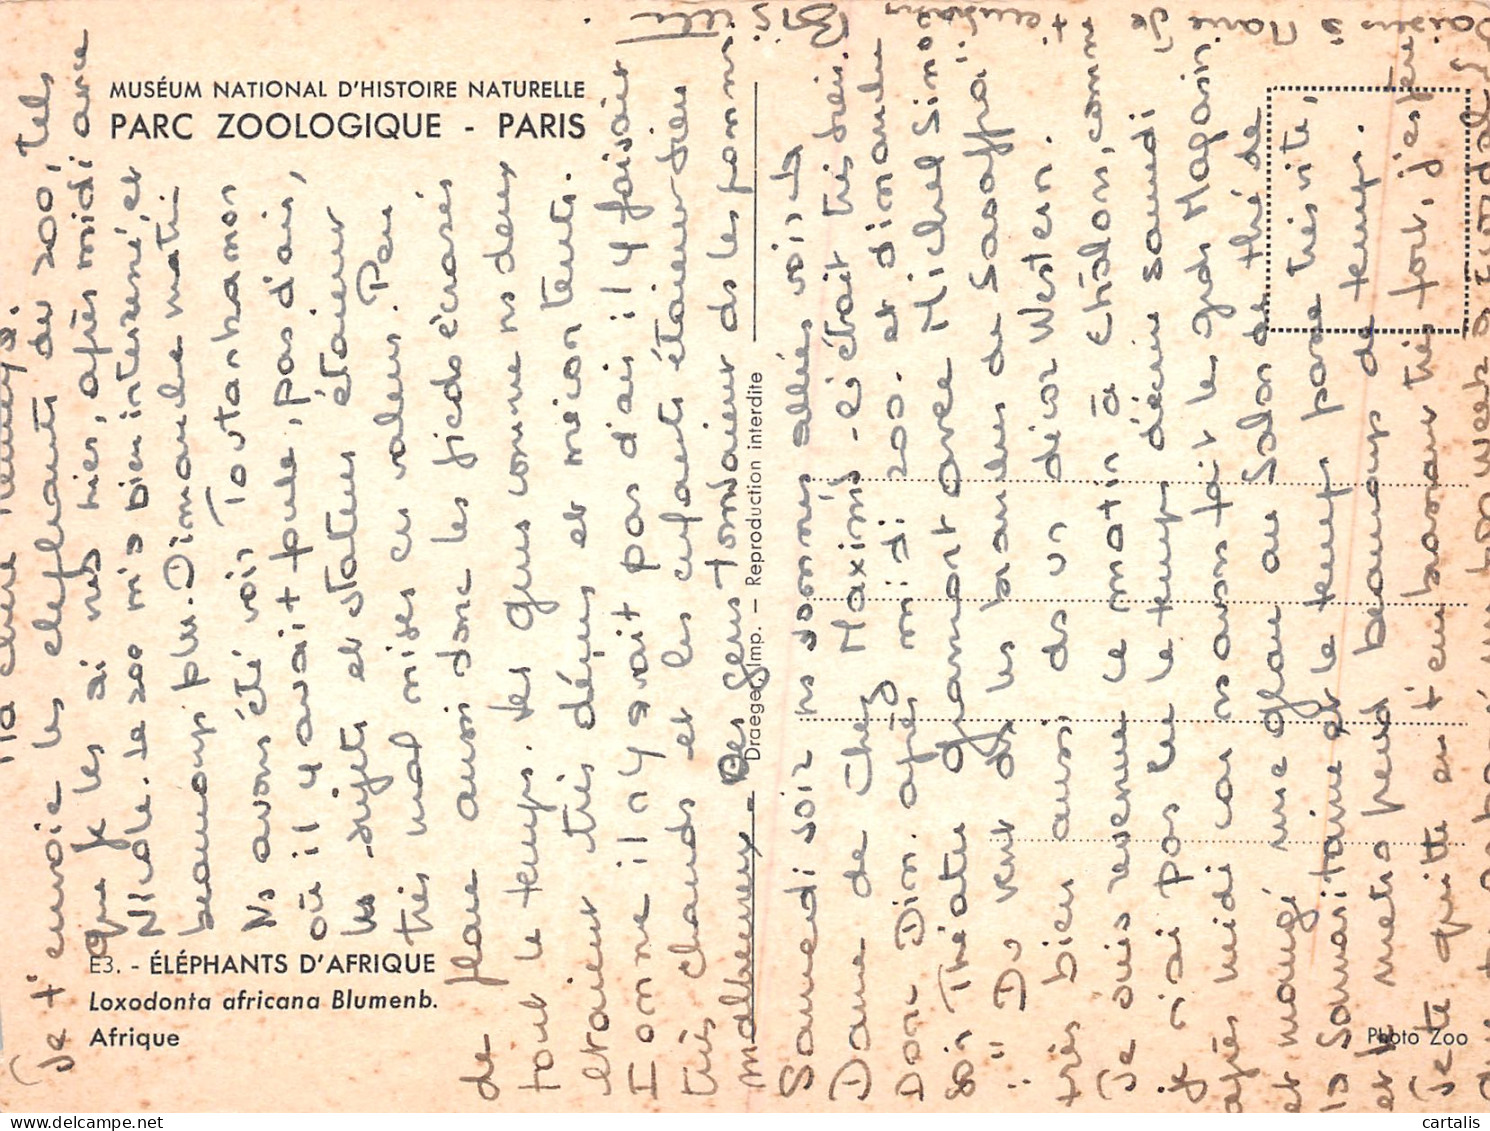 MUSÉUM NATIONAL D'HISTOIRE NATURELLE
PARC ZOOLOGIQUE - PARIS
E3. - ÉLÉPHANTS D'AFRIQUE
Loxodonta africana Blumenb.
Afrique
Draeger, Imp. - Reproduction interdite
Photo Zoo
Ma chère
Je t'envoie les elephants du zoo, tels
que je les ai vus hier, après midi avec
Nicole. Le zoo m'a bien interessée et
beaucoup plu. Dimanche matin
Ns avons été voir Toutankamon
où il y avait foule, pas d'air,
les sujets et statues étaient
très mal mises en valeur. Peu
de place aussi donc les pieds écrasés
tout le temps. Les gens comme ns deux
etaient très déçus et mécontents.
Comme il n'y avait pas d'air il y faisait
très chauds et les enfants étaient bien
malheureux. Des gens tombaient ds les pommes
Samedi soir ns sommes allées voir la
Dame de chez Maxim's - c'était très bien.
Donc Dim. après midi zoo. et dimanche
soir Théatre Gramont avec Michel Simon
"Du vent ds les branches de Sassafras"
très bien aussi ds un décor Western.
Je suis revenue ce matin à Châlon, comme
je n'ai pas eu le temps d'écrire samedi
après midi car ns avons fait les gds Magasins
et mangé une glace au Salon de thé de
la Samaritaine et le temps passe très vite,
et le métro perd beaucoup de temps.
Je te quitte en t'embrassant très fort, j'espère